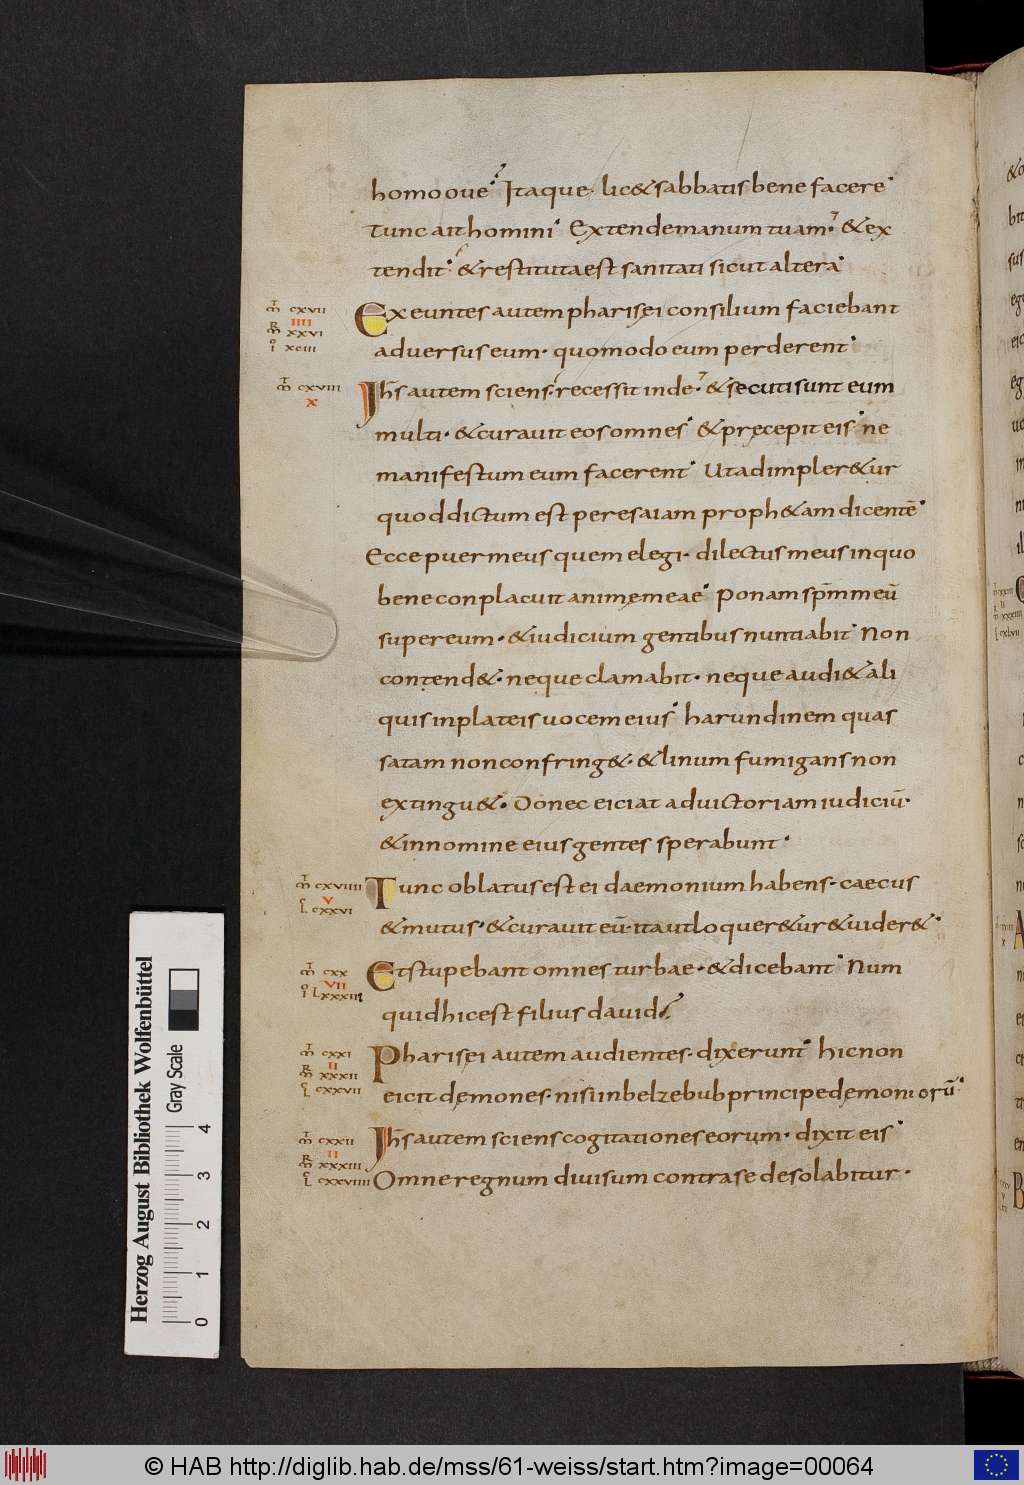 homo oue. Itaque. lic& sabbatis bene facere.
Tunc ait homini. Extende manum tuam. & ex
tendit. & restituta est sanitati sicut altera.
Exeuntes autem pharisęi consilium faciebant
aduersus eum. quomodo eum perderent.
Ihs autem sciens. recessit inde. & secuti sunt eum
multi. & curauit eos omnes. & pręcepit eis ne
manifestum eum facerent. Ut adimpler&ur
quod dictum est per esaiam proph&am dicentē.
Ecce puer meus quem elegi. dilectus meus in quo
bene conplacuit animę meae. Ponam spm̄ meū
super eum. & iudicium gentibus nuntiabit. Non
contend&. neque clamabit. neque audi& ali
quis in plateis uocem eius. harundinem quas
satam non confring&. & linum fumigans non
extingu&. Donec eiciat ad uictoriam iudiciū.
& in nomine eius gentes sperabunt.
Tunc oblatus est ei daemonium habens. caecus
& mutus. & curauit eū. ita ut loquer&ur & uider&.
Et stupebant omnes turbae. & dicebant. Num
quid hic est filius dauid.
Pharisei autem audientes. dixerunt. hic non
eicit dęmones. nisi in belzebub principe dęmoniorū.
Ihs autem sciens cogitationes eorum. dixit eis.
Omne regnum diuisum contra se desolabitur.
cxvii
IIII
xxvi
xciii
cxviii
x
cxviiii
v
cxxvi
cxx
VII
Lxxxiii
cxxi
II
xxxii
cxxvii
cxxii
II
xxxiii
cxxviiii
Herzog August Bibliothek Wolfenbüttel
Gray Scale
0 1 2 3 4
© HAB http://diglib.hab.de/mss/61-weiss/start.htm?image=00064